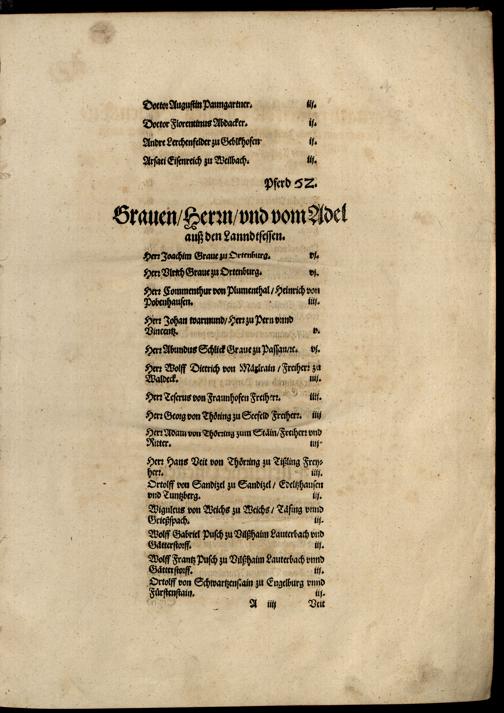 Doctor Augustin Paumgartner. iij.
Doctor Florentinus Abdacker. ij.
Andre Lerchenfelder zu Geblkhofen ij.
Arsati Eisenreich zu Weilbach. iij.
Pferd 52.
Grauen/Herrn/vnd vom Adel
auß den Lanndtsessen.
Herr Joachim Graue zu Ortenburg. vj.
Herr Vlrich Graue zu Ortenburg. vj.
Herr Commenthur von Plumenthal/Heinrich von
Pobenhausen. iiij.
Herr Johan warmund/Herr zu Pern vnnd
Vincentz. v.
Herr Abundus Schlick Graue zu Passaun/rc. vj.
Herr Wolff Dietrich von Mäxlrain/Freiherr zu
Waldeck. iiij.
Herr Teserus von Fraunhofen Freiherr. iiij.
Herr Georg von Thöring zu Seefeld Freiherr. iiij
Herr Adam von Thöring zum Stain/Freiherr vnd
Ritter. iiij.
Herr Hans Veit von Thöring zu Tißling Frey-
herr. iiij.
Ortolff von Sandizel zu Sandizel/Edeltzhausen
vnd Tuntzberg. iij.
Wiguleus von Weichs zu Weichs/Täfing vnnd
Grießpach. iij.
Wolff Gabriel Pusch zu Vilßhaim Lauterbach vnd
Gätterstorff. iij.
Wolff Frantz Pusch zu Vilßhaim Lauterbach vnnd
Gätterstorff. iij.
Ortolff von Schwartzenstain zu Engelburg vnnd
Fürstenstain. iij.
A iiij Veit